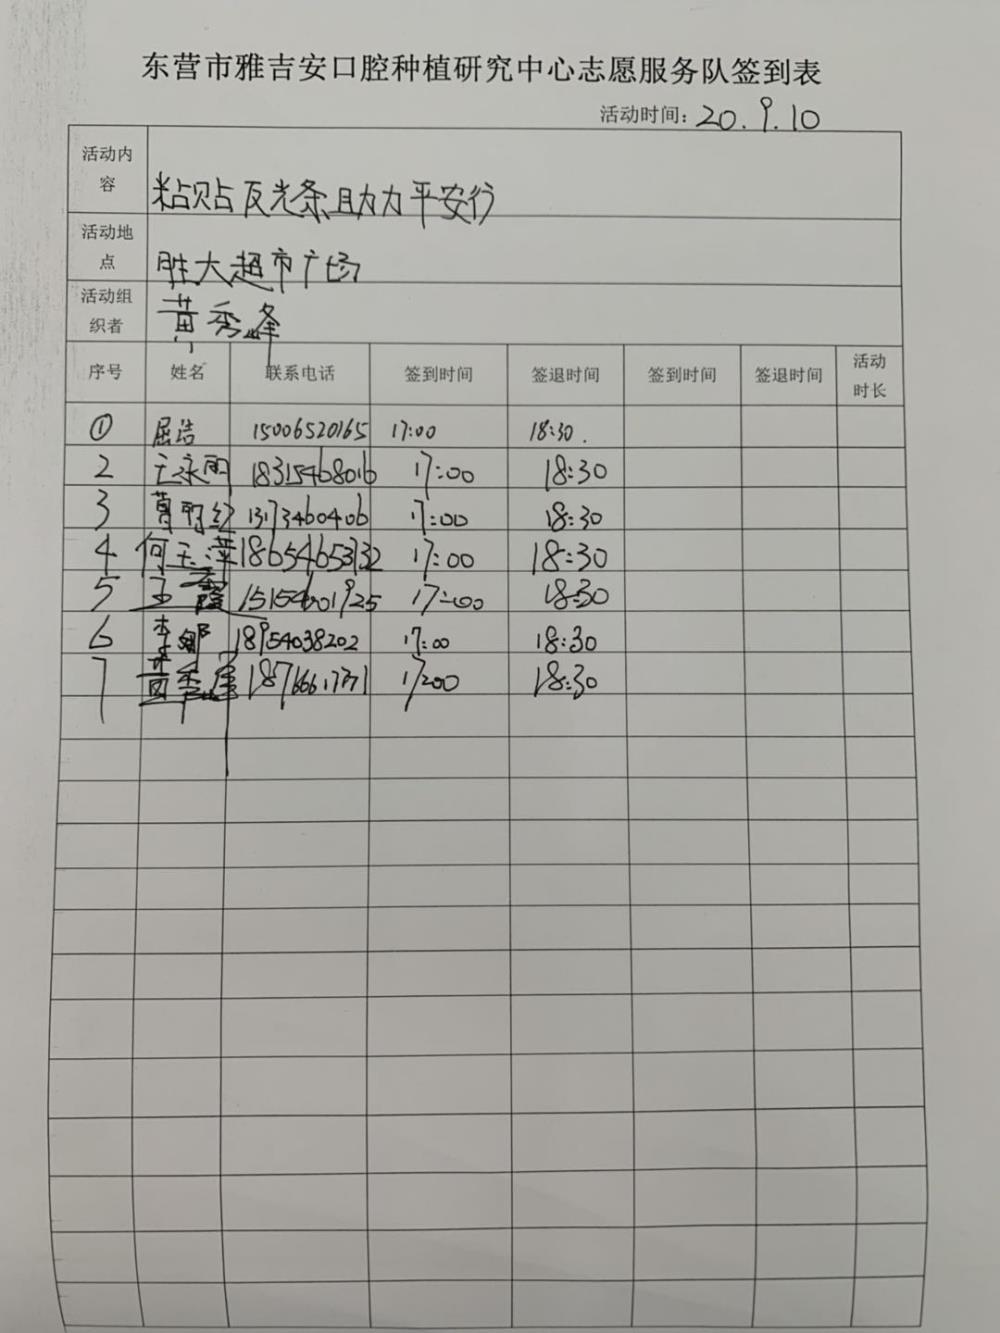 东营市雅吉安口腔种植研究中心志愿服务队签到表
活动时间：20.9.10
活动内容 粘贴反光条助力平安行
活动地点 胜大超市广场
活动组织者 黄秀峰
序号 姓名 联系电话 签到时间 签退时间 签到时间 签退时间 活动时长
① 屈浩 15006520165 17:00 18:30.
2 王永雨 18315468016 17:00 18:30
3 13173460406 17:00 18:30
4 何玉萍 18654653732 17:00 18:30
5 王霞 15154601925 17:00 18:30
6 李娜 18954038202 17:00 18:30
7 黄秀峰 17:00 18:30